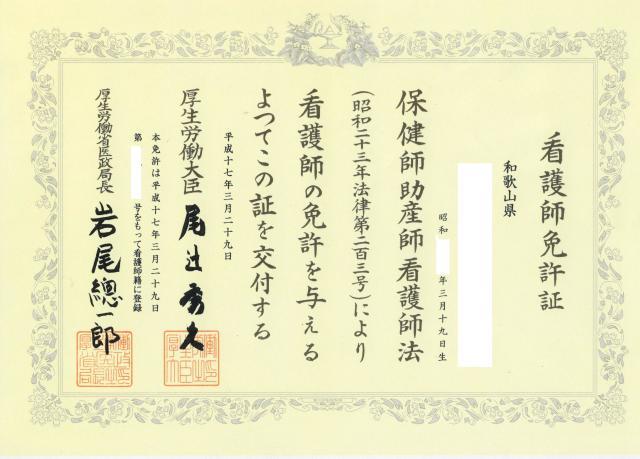 看護師免許証
和歌山県
昭和 年三月十九日生
保健師助産師看護師法
(昭和二十三年法律第二百三号)により
看護師の免許を与える
よつてこの証を交付する
平成十七年三月二十九日
厚生労働大臣 尾辻秀久
本免許は平成十七年三月二十九日
第 号をもって看護師籍に登録
厚生労働省医政局長 岩尾總一郎